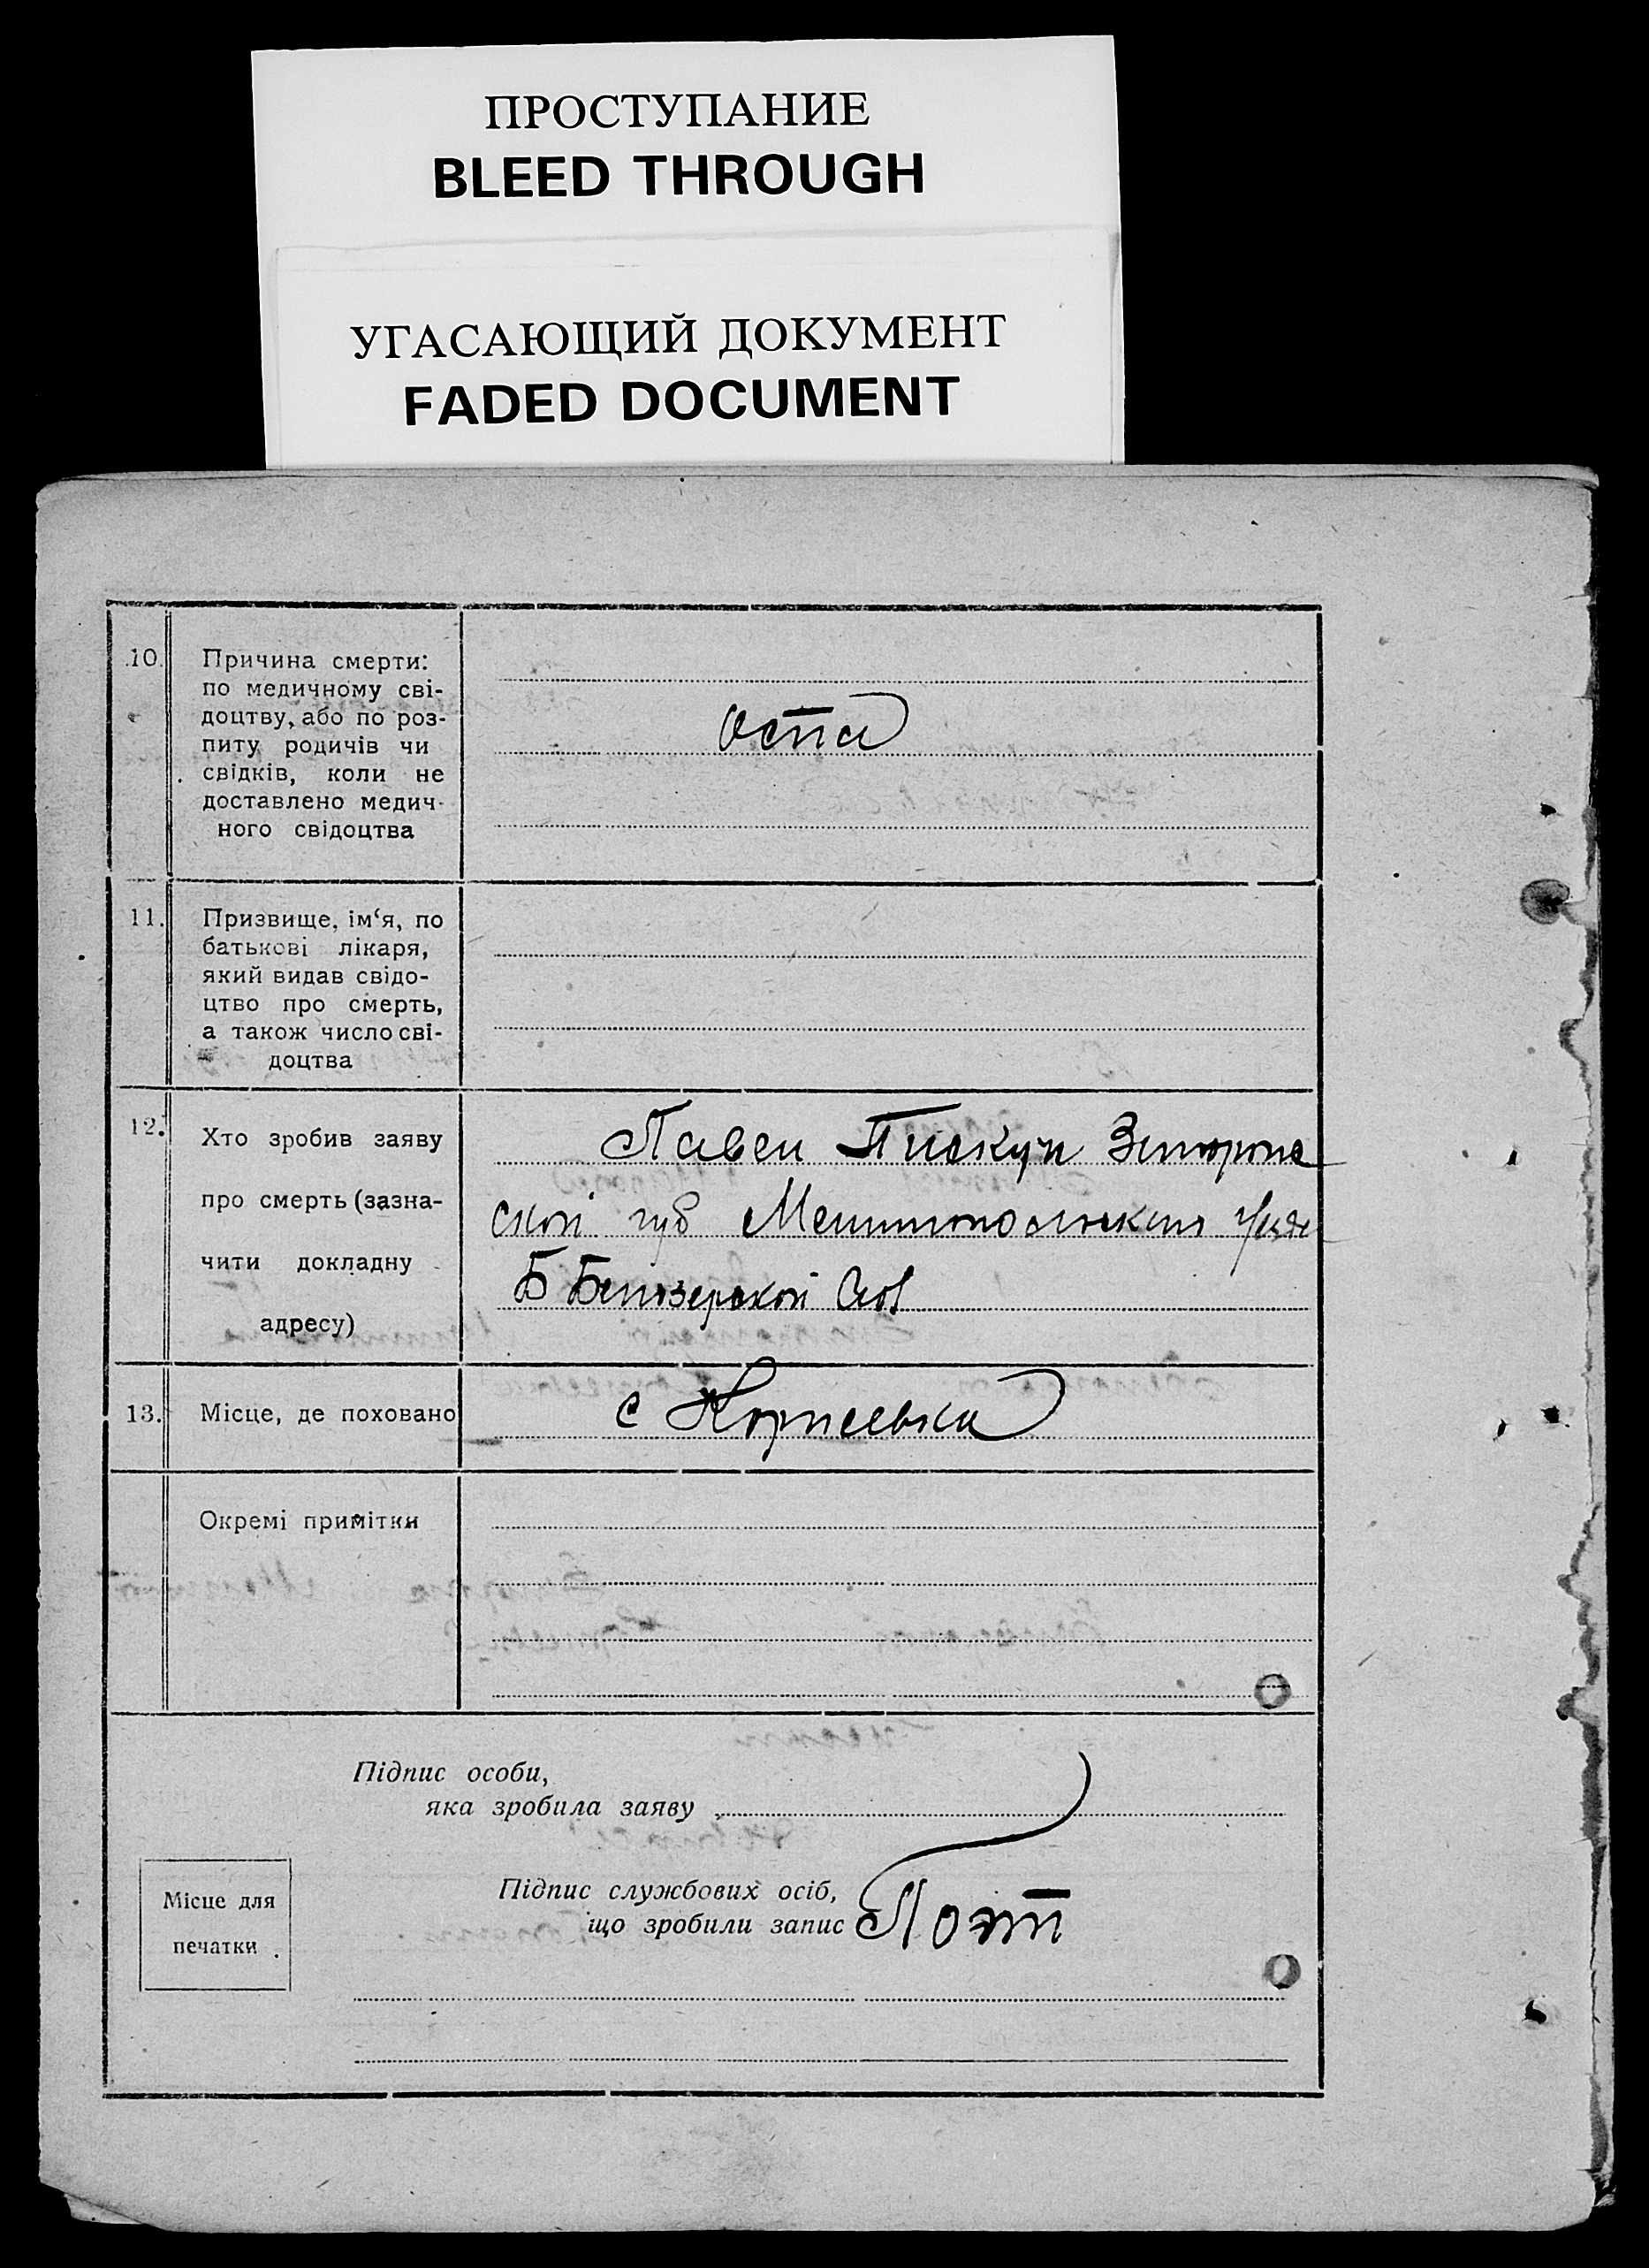 ПРОСТУПАНИЕ
BLEED THROUGH
УГАСАЮЩИЙ ДОКУМЕНТ
FADED DOCUMENT
10. Причина смерти:
по медичному сві-
доцтву, або по роз-
питу родичів чи
свідків, коли не
доставлено медич-
ного свідоцтва
оспа
11. Призвище, ім‘я, по
батькові лікаря,
який видав свідо-
цтво про смерть,
а також число сві-
доцтва
12. Хто зробив заяву
про смерть (зазна-
чити докладну
адресу)
Павел Пискун
ской губ
Б Белозерской
13. Місце, де поховано
с Корнеевка
Окремі примітки
Підпис особи,
яка зробила заяву
Підпис службових осіб,
що зробили запис
Місце для
печатки